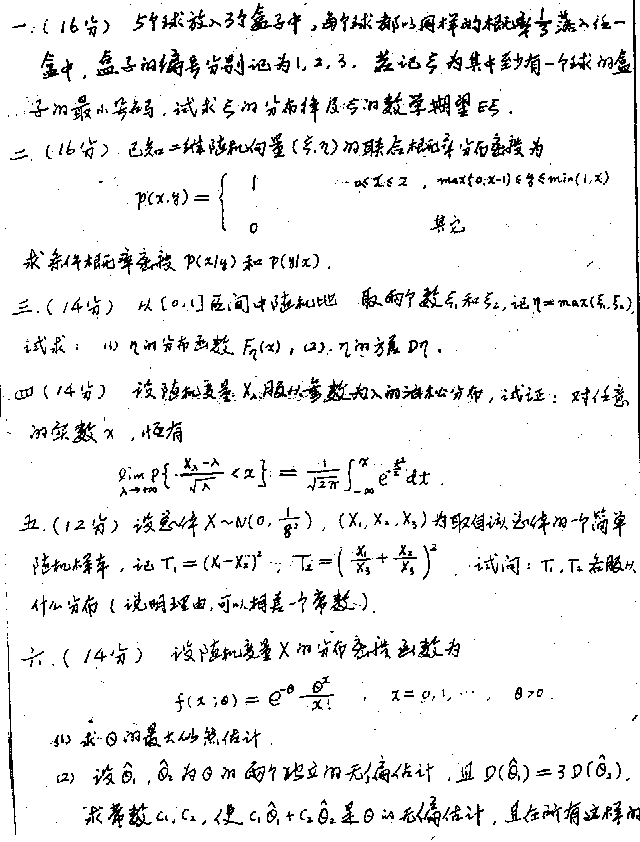 一.(16分) 5个球放入3个盒子中,每个球都以同样的概率1/3落入任一
盒中,盒子的编号分别记为1,2,3. 若记ξ为其中至少有一个球的盒
子的最小号码,试求ξ的分布律及ξ的数学期望Eξ.
二.(16分) 已知二维随机向量(ξ,η)的联合概率分布密度为
p(x,y) = { 1 0≤x≤2 , max(0,x-1)≤y≤min(1,x)
0 其它
求条件概率密度 P(x|y) 和 P(y|x).
三.(14分) 从[0,1]区间中随机地 取两个数ξ₁和ξ₂,记η=max(ξ₁,ξ₂),
试求: (1) η的分布函数 Fη(x), (2). η的方差 Dη.
四(14分) 设随机变量 Xλ服从参数为λ的泊松分布,试证: 对任意
的实数 x ,恒有
lim_{λ→+∞} P{ (Xλ-λ)/√λ < x } = 1/√(2π) ∫_{-∞}^{x} e^{-t²/2} dt .
五.(12分) 设总体 X~N(0, 1/8²), (X₁,X₂,X₃)为取自该总体的一个简单
随机样本,记 T₁=(X₁-X₂)², T₂=(X₁/X₃ + X₂/X₃)² 试问: T₁,T₂各服从
什么分布(说明理由,可以相差一个常数).
六.(14分) 设随机变量X的分布密度函数为
f(x;θ) = e^{-θ} θ^x/x! , x=0,1,…, θ>0.
(1) 求θ的最大似然估计
(2) 设θ̂₁,θ̂₂为θ的两个独立的无偏估计,且 D(θ̂₁)=3D(θ̂₂),
求常数 C₁,C₂, 使 C₁θ̂₁+C₂θ̂₂是θ的无偏估计,且在所有这样的